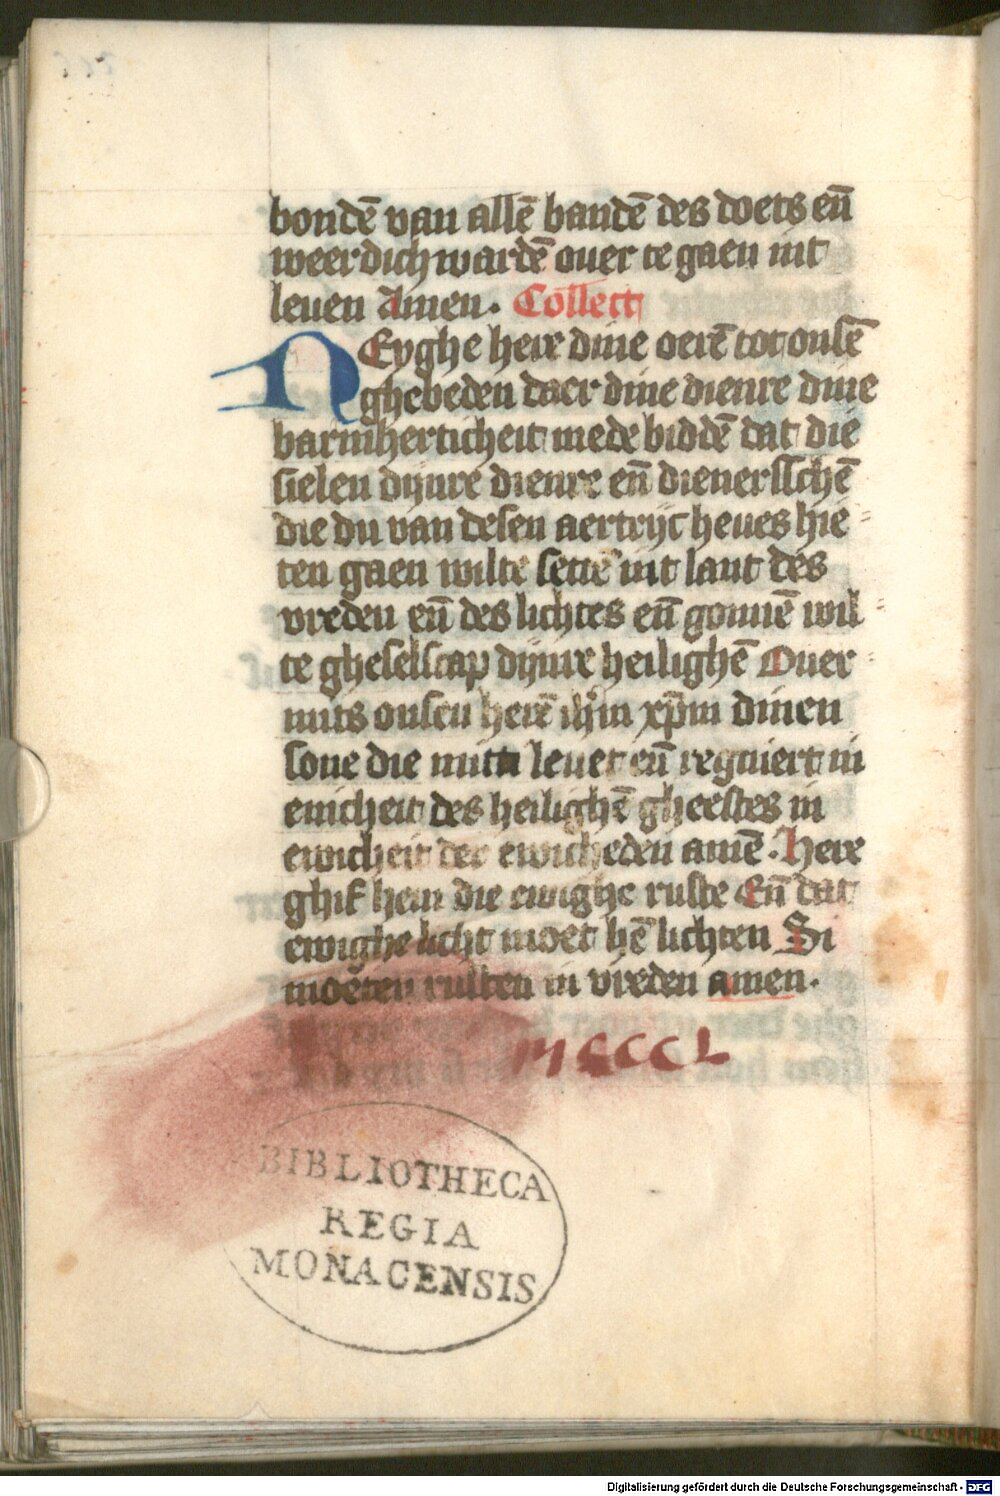 bondē van allē bandē des doets eñ
weerdich wardē ouer te gaen int
leuen Amen. Collect
NEyghe here dine oerē tot onsē
ghebeden daer dine dienre dine
barmherticheit mede biddē dat die
sielen dijnre dienre eñ dienersschē
die du van desen aertryc heues hie⸗
ten gaen wilte settē int lant des
vreden eñ des lichtes eñ gonnē wil⸗
te gheselscap dijnre heilighē Ouer⸗
mits onsen herē ihm xpm dinen
sone die mitti leuet eñ regniert in
enicheit des heilighē gheestes in
ewicheit der ewicheden amē. Here
ghif hem die ewighe ruste Eñ dat
ewighe licht moet hē lichten Si
moeten rusten in vreden amen.
MCCCCL
BIBLIOTHECA
REGIA
MONACENSIS
Digitalisierung gefördert durch die Deutsche Forschungsgemeinschaft - DFG